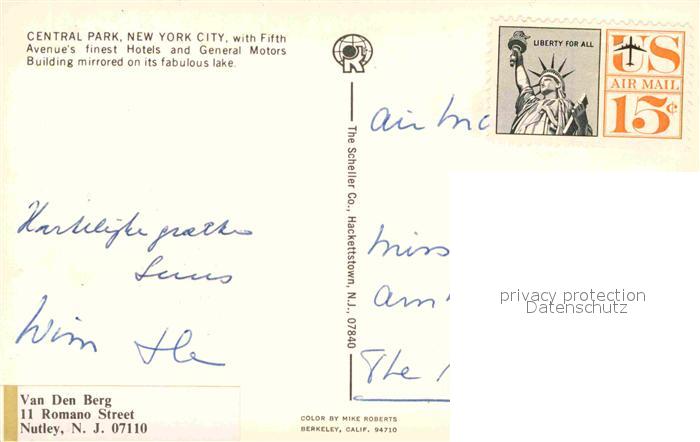 CENTRAL PARK, NEW YORK CITY, with Fifth
Avenue's finest Hotels and General Motors
Building mirrored on its fabulous lake.
R
LIBERTY FOR ALL
US
AIR MAIL
15¢
The Scheller Co., Hackettstown, N.J., 07840
air
Hartelijke
Wim
Miss
The
privacy protection
Datenschutz
Van Den Berg
11 Romano Street
Nutley, N. J. 07110
COLOR BY MIKE ROBERTS
BERKELEY, CALIF. 94710